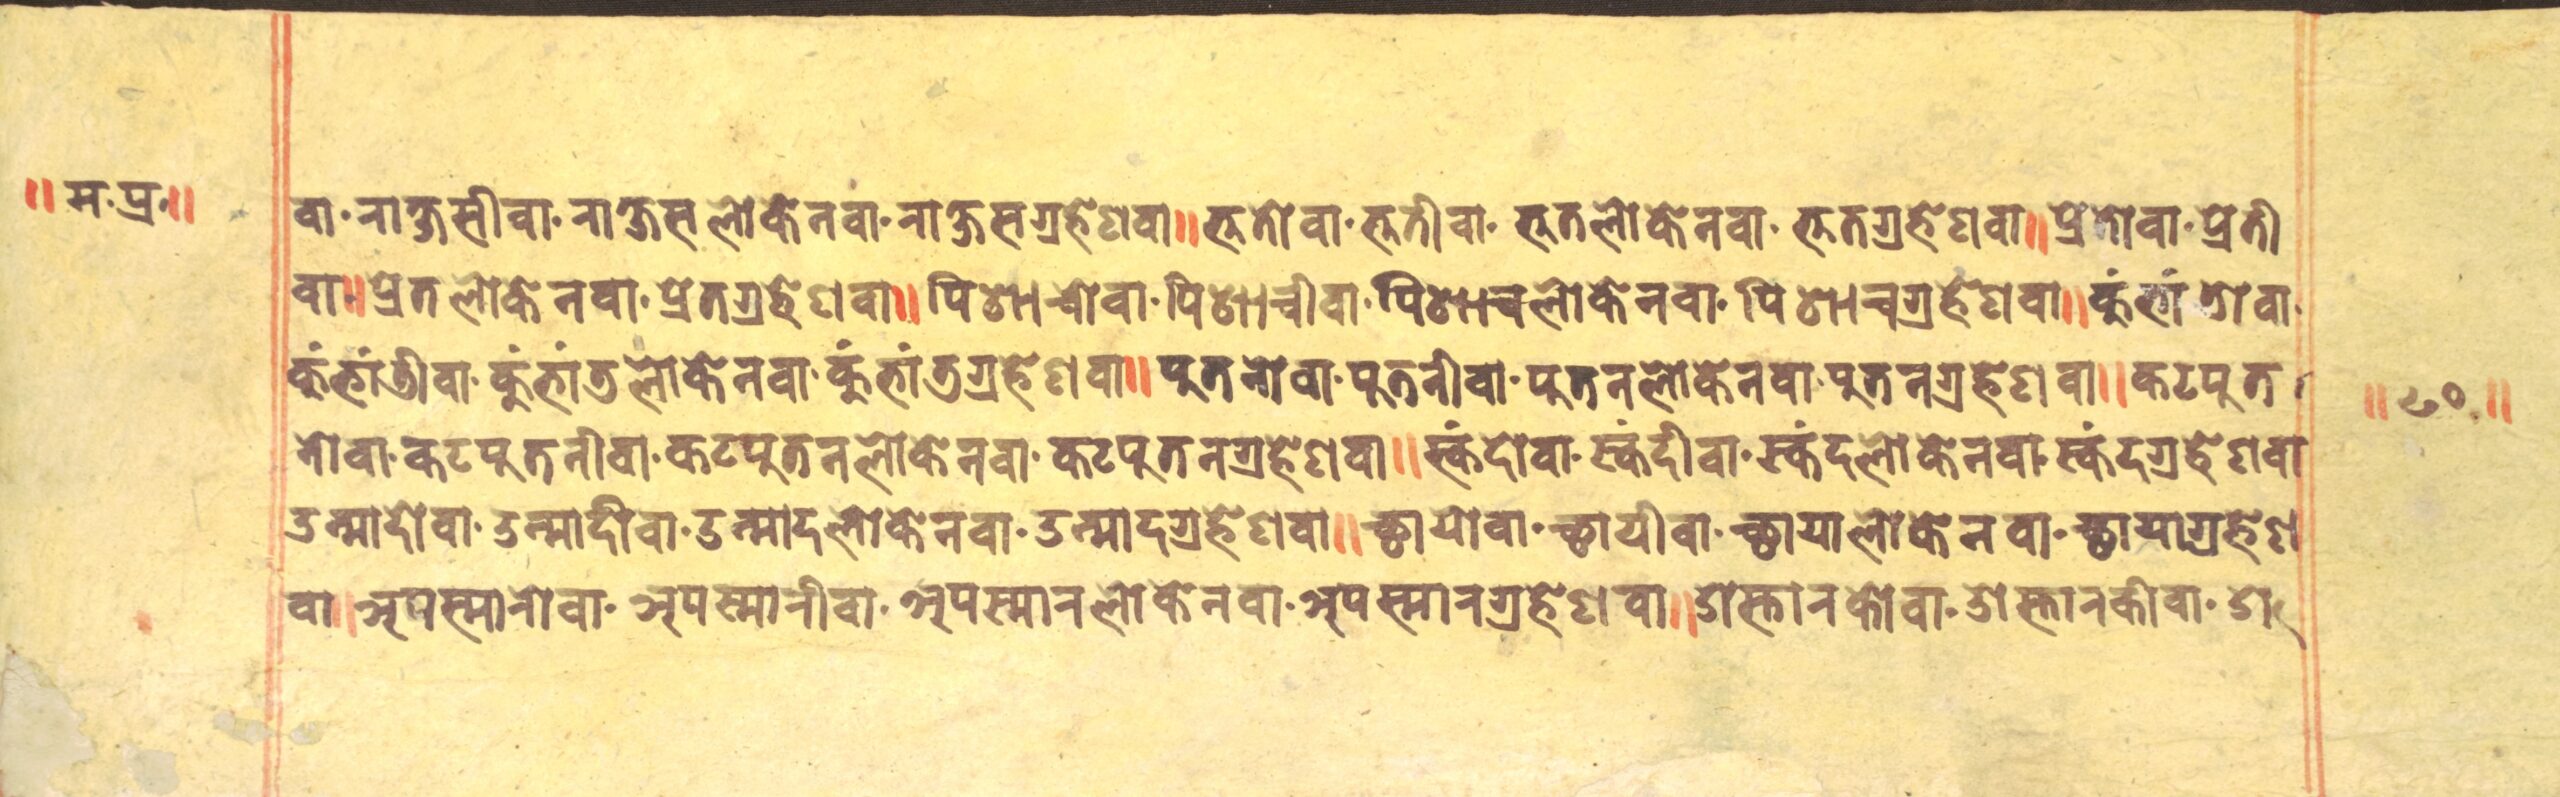 ॥म·प्र·॥
वा·राक्षसीवा·राक्षसलोकेनवा·राक्षसग्रहेणवा॥भूतोवा·भूतीवा·भूतलोकेनवा·भूतग्रहेणवा॥प्रेतोवा·प्रेती
वा॥प्रेतलोकेनवा·प्रेतग्रहेणवा॥पिशाचोवा·पिशाचीवा·पिशाचलोकेनवा·पिशाचग्रहेणवा॥कुंभांडोवा·
कुंभांडीवा·कुंभांडलोकेनवा·कुंभांडग्रहेणवा॥पुतनोवा·पुतनीवा·पुतनलोकेनवा·पुतनग्रहेणवा॥कटपुत
नोवा·कटपुतनीवा·कटपुतनलोकेनवा·कटपुतनग्रहेणवा॥स्कंदोवा·स्कंदीवा·स्कंदलोकेनवा·स्कंदग्रहेणवा
उन्मादोवा·उन्मादीवा·उन्मादलोकेनवा·उन्मादग्रहेणवा॥च्छायोवा·च्छायीवा·च्छायालोकेनवा·च्छायाग्रहेण
वा॥अपस्मारोवा·अपस्मारीवा·अपस्मारलोकेनवा·अपस्मारग्रहेणवा॥डोस्तारकोवा·डोस्तारकीवा·डो